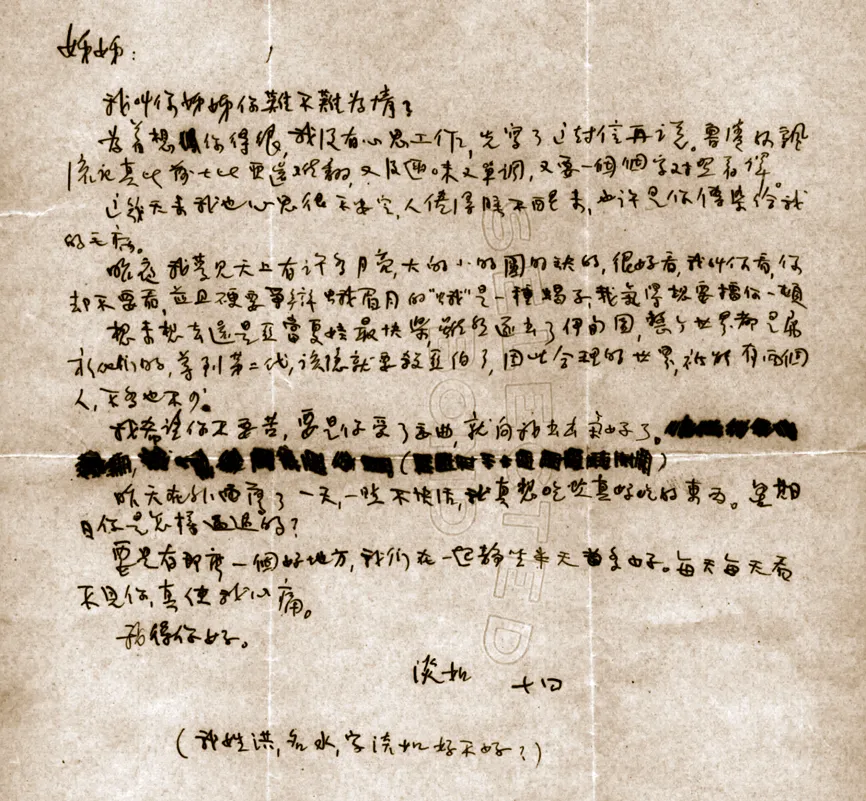 姊姊：
我叫你姊姊你難不難為情？
為着想你得很，我沒有心思工作，先寫了這封信再說。魯濱孙飄
流記真比莎士比亞還難翻，又沒趣味又單調，又要一個個字对照着译。
這幾天來我也心思很不安定，人倦得睡不醒來，也許是你傳染給我
的毛病。
昨夜我夢見天上有許多月亮，大的小的圓的缺的，很好看，我叫你看，你
却不要看，並且硬要爭辯蛾眉月的“蛾”是一種蝎子，我氣得想要擂你一頓
想來想去還是亞當夏娃最快樂，雖然逐去了伊甸園，整个世界都是屬
於他們的，等到第二代，該隱就要殺亞伯了，因此合理的世界，祇能有兩個
人，不多也不少。
我希望你不要苦，要是你受了委曲，就向我出出氣好了。
昨天在外面蕩了一天，一些不快活，我真想吃些真好吃的東西。星期
日你是怎樣過過的？
要是有那麼一個好地方，我們在一起靜坐半天多好。每天每天看
不見你，真使我心痛。
我待你好。
淡如 十日
（我姓洪，名水，字淡如好不好？）